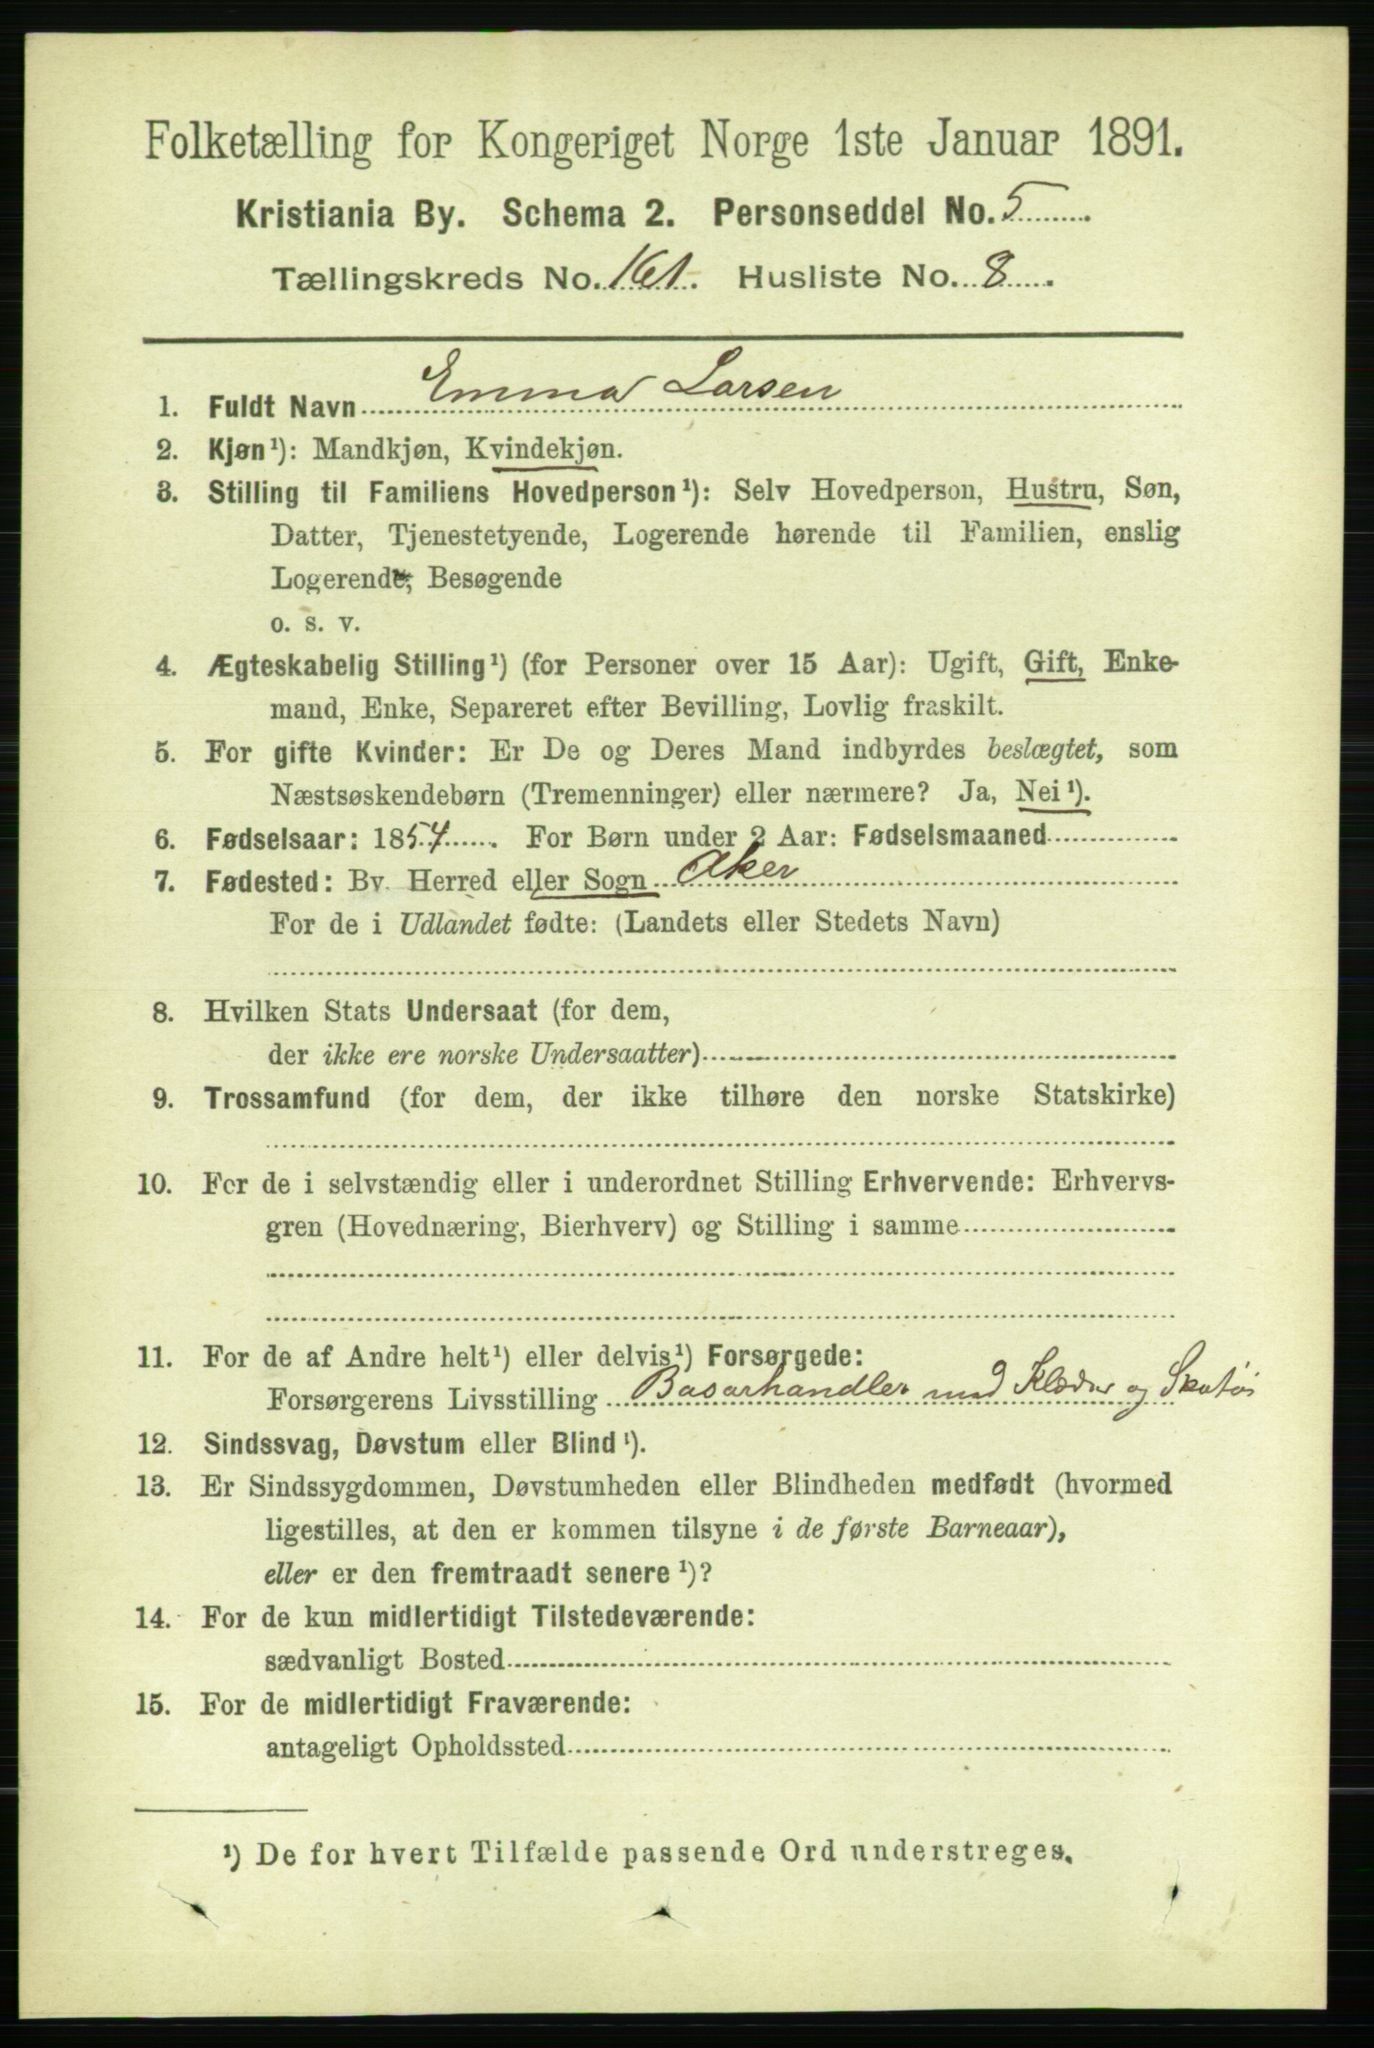 Folketælling for Kongeriget Norge 1ste Januar 1891.
Kristiania By. Schema 2. Personseddel No. 5
Tællingskreds No. 161. Husliste No. 8
1. Fuldt Navn Emma Larsen
2. Kjøn¹): Mandkjøn, Kvindekjøn.
3. Stilling til Familiens Hovedperson¹): Selv Hovedperson, Hustru, Søn,
Datter, Tjenestetyende, Logerende hørende til Familien, enslig
Logerende, Besøgende
o. s. v.
4. Ægteskabelig Stilling¹) (for Personer over 15 Aar): Ugift, Gift, Enke-
mand, Enke, Separeret efter Bevilling, Lovlig fraskilt.
5. For gifte Kvinder: Er De og Deres Mand indbyrdes beslægtet, som
Næstsøskendebørn (Tremenninger) eller nærmere? Ja, Nei¹).
6. Fødselsaar: 1854. For Børn under 2 Aar: Fødselsmaaned
7. Fødested: By, Herred eller Sogn Aker
For de i Udlandet fødte: (Landets eller Stedets Navn)
8. Hvilken Stats Undersaat (for dem,
der ikke ere norske Undersaatter)
9. Trossamfund (for dem, der ikke tilhøre den norske Statskirke)
10. For de i selvstændig eller i underordnet Stilling Erhvervende: Erhvervs-
gren (Hovednæring, Bierhverv) og Stilling i samme
11. For de af Andre helt¹) eller delvis¹) Forsørgede:
Forsørgerens Livsstilling Basarhandler med Klæder og Skotøi
12. Sindssvag, Døvstum eller Blind¹).
13. Er Sindssygdommen, Døvstumheden eller Blindheden medfødt (hvormed
ligestilles, at den er kommen tilsyne i de første Barneaar),
eller er den fremtraadt senere¹)?
14. For de kun midlertidigt Tilstedeværende:
sædvanligt Bosted
15. For de midlertidigt Fraværende:
antageligt Opholdssted
¹) De for hvert Tilfælde passende Ord understreges.